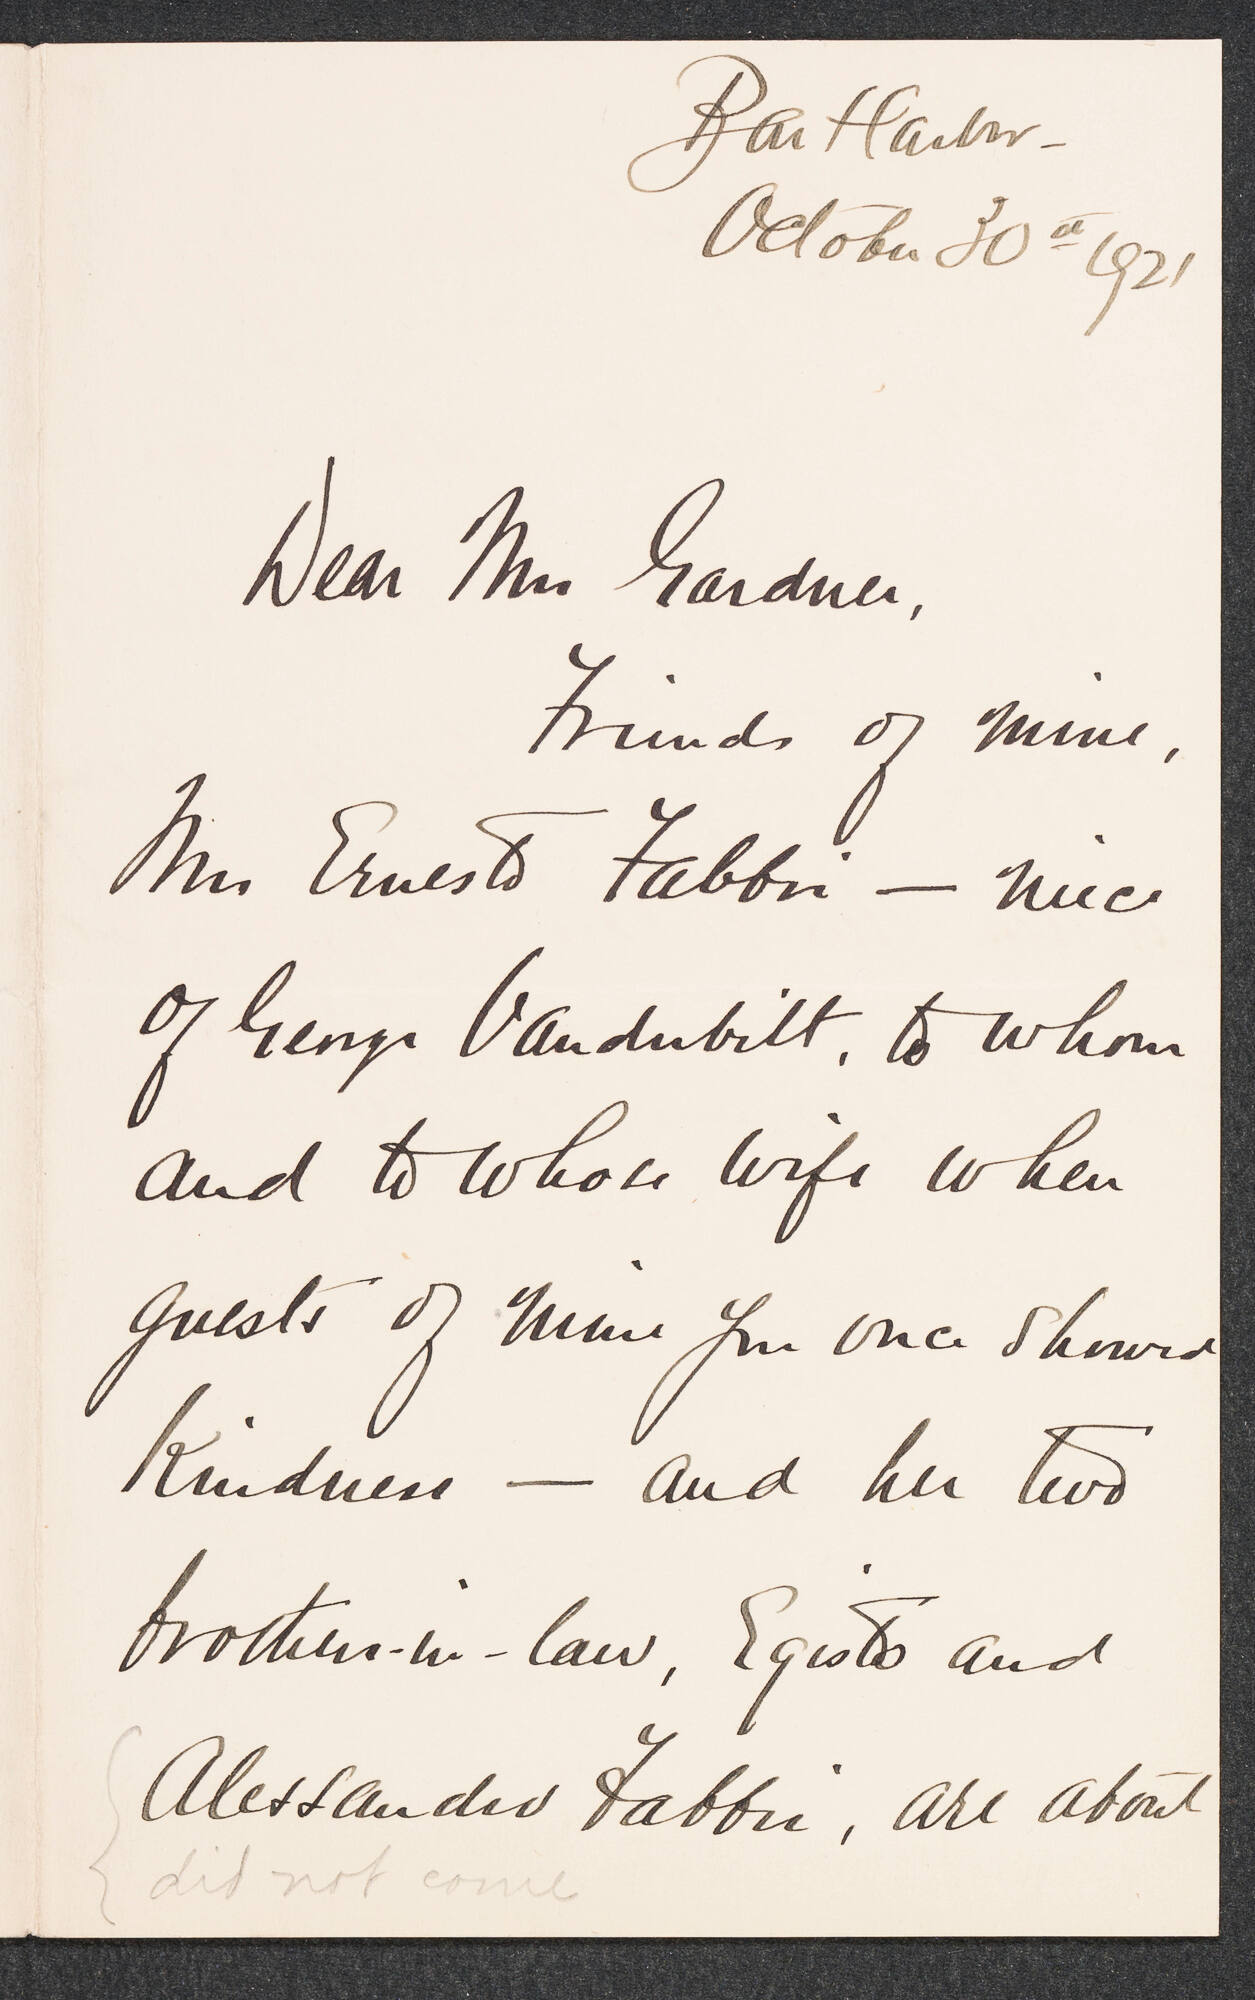 Bar Harbor -
October 30th 1921
Dear Mrs Gardner,
Friends of mine,
Mrs Ernesto Fabbri — niece
of George Vanderbilt, to whom
and to whose wife when
guests of mine you once showed
kindness — and her two
brothers-in-law, Egisto and
Alessandro Fabbri, are about
did not come